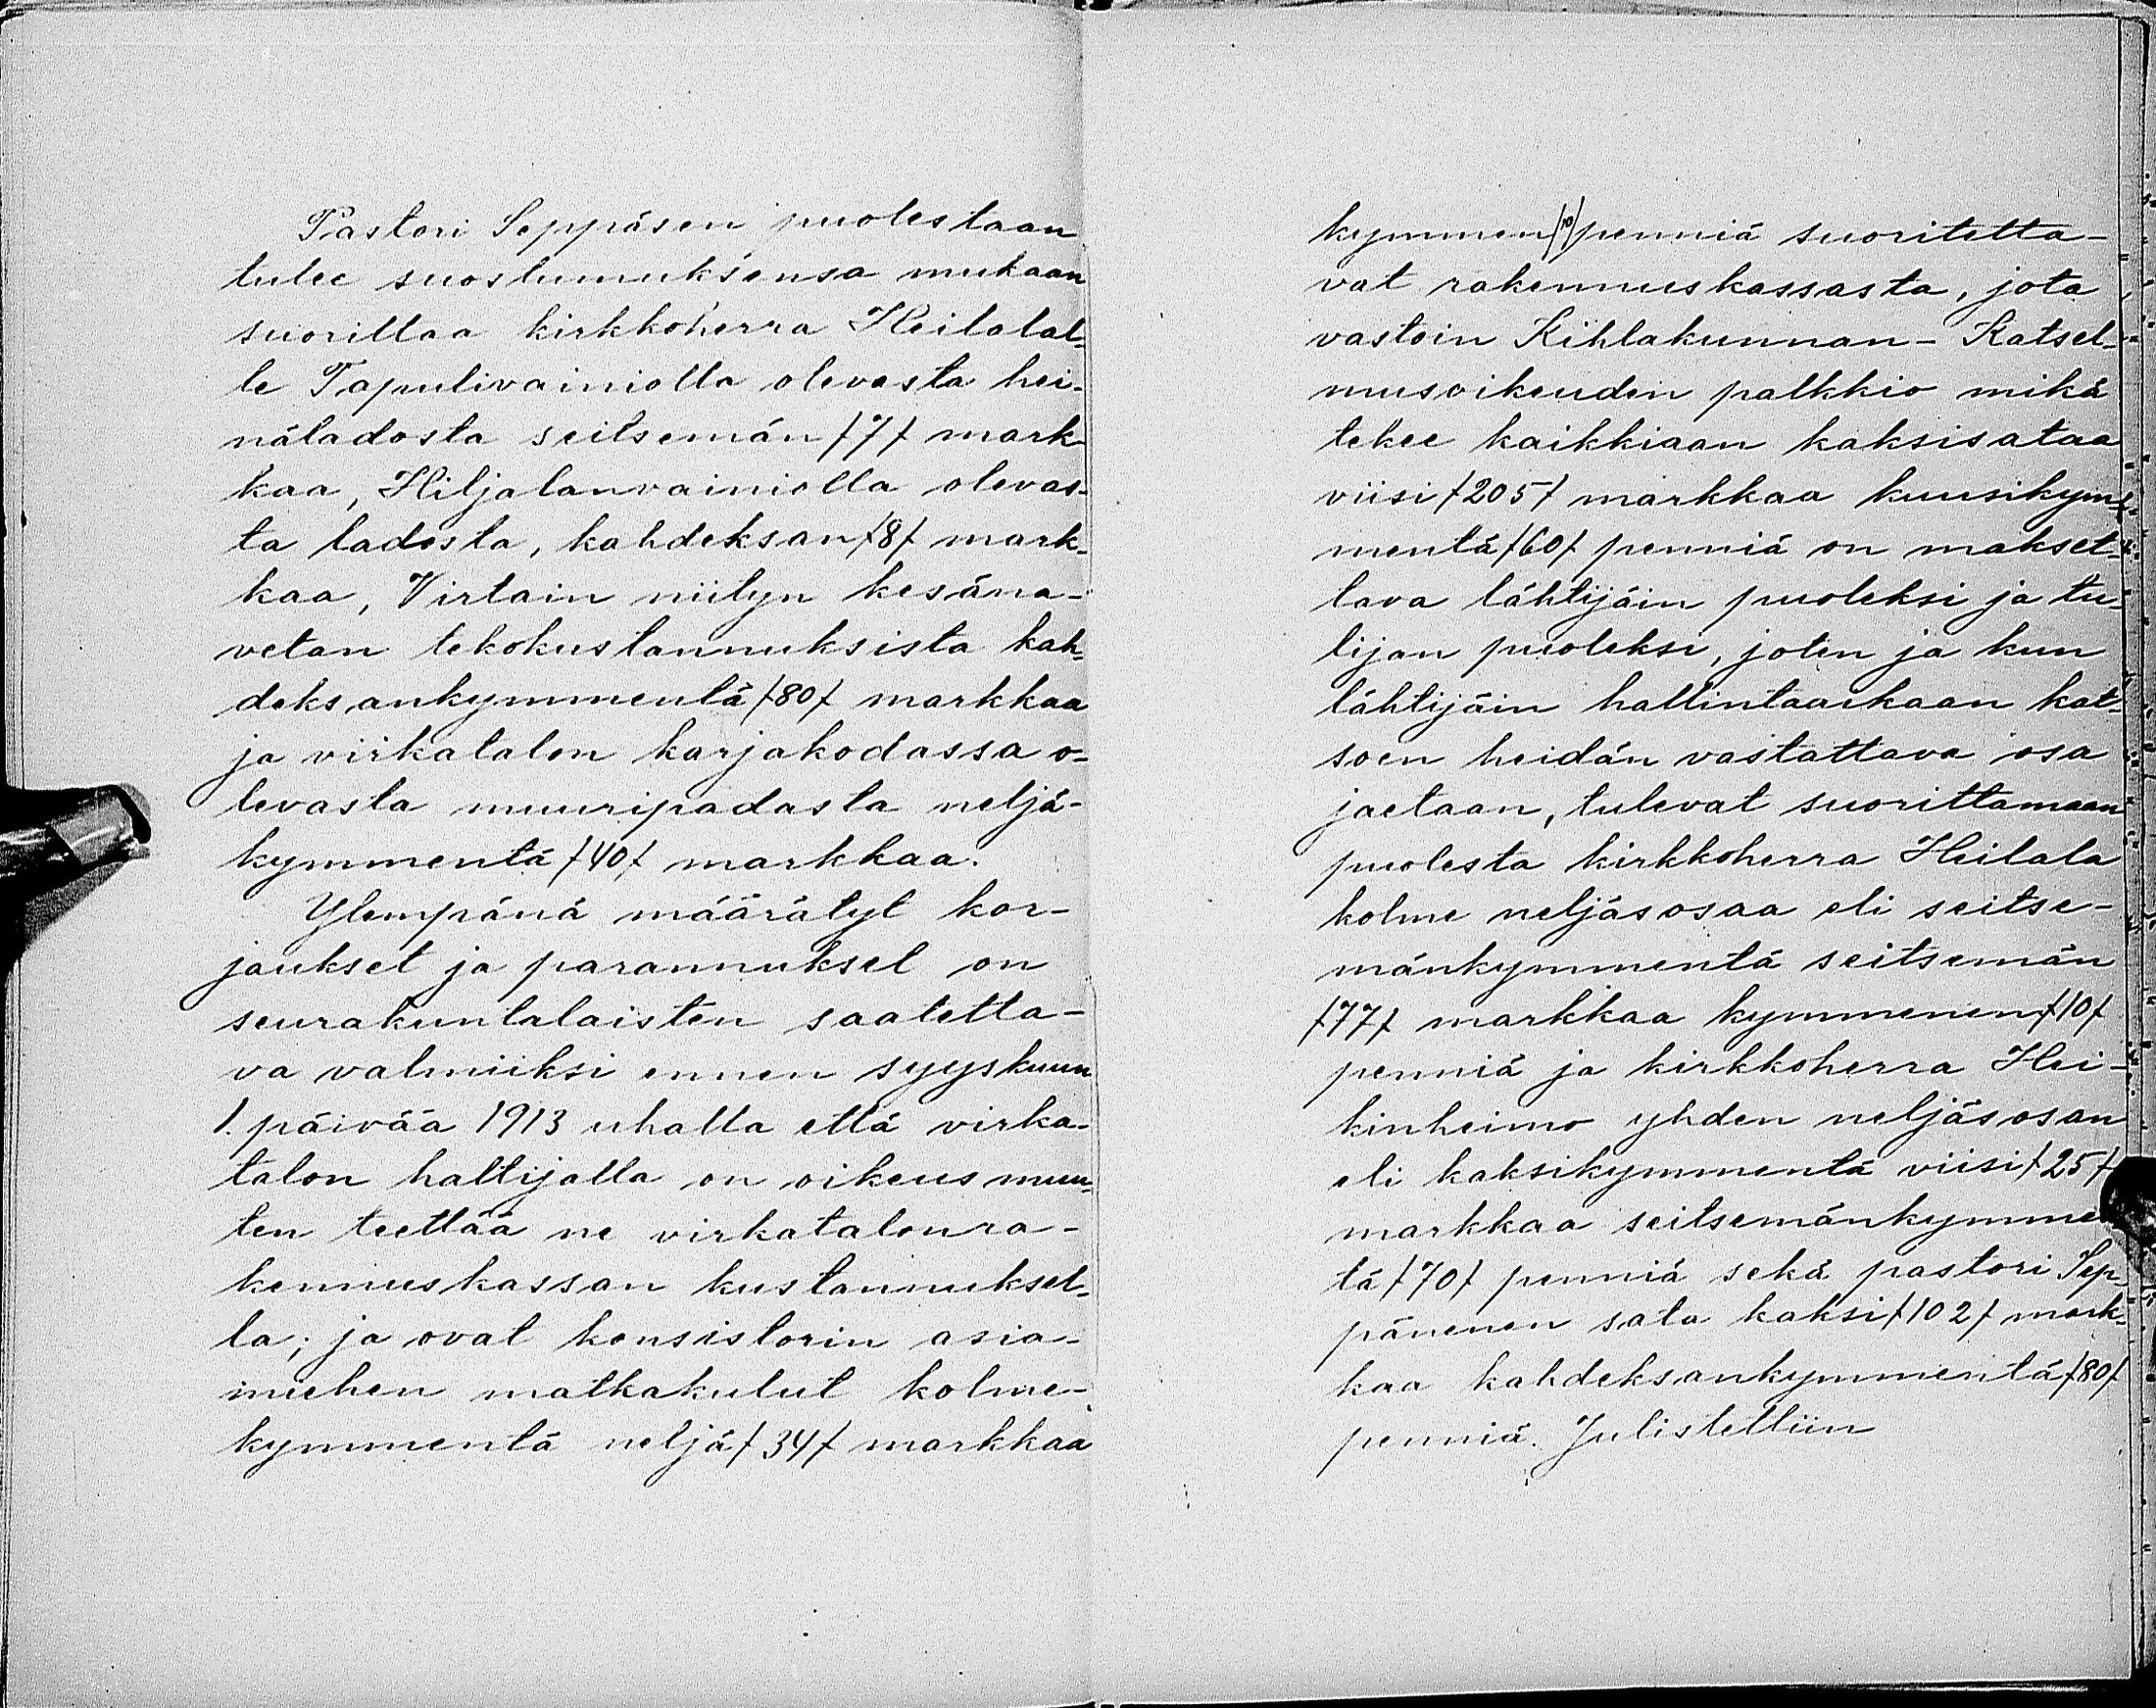 Pastori Seppäsen puolestaan
tulee suostumuksensa mukaan
suorittaa kirkkoherra Heilalal-
le Tapulivainiolla olevasta hei-
näladosta seitsemän /7/ mark-
kaa, Hiljalanvainiolla olevas-
ta ladosta, kahdeksan /8/ mark-
kaa, Virtain niityn kesäna-
vetan tekokustannuksista kah-
deksankymmentä /80/ markkaa
ja virkatalon karjakodassa o-
levasta muuripadasta neljä-
kymmentä /40/ markkaa.
Ylempänä määrätyt kor-
jaukset ja parannukset on
seurakuntalaisten saatetta-
va valmiiksi ennen syyskuun
1. päivää 1913 uhalla että virka-
talon haltijalla on oikeus muu-
ten teettää ne virkatalonra-
kennuskassan kustannuksel-
la; ja ovat konsistorin asia-
miehen matkakulut kolme-
kymmentä neljä /34/ markkaa
kymmen /10/ penniä suoritetta-
vat rakennuskassasta, jota
vastoin Kihlakunnan- Katsel-
musoikeuden palkkio mikä
tekee kaikkiaan kaksisataa
viisi /205/ markkaa kuusikym-
mentä /60/ penniä on makset-
tava lähtijäin puoleksi ja tu-
lijan puoleksi, joten ja kun
lähtijäin hallintaaikaan kat-
soen heidän vastattava osa
jaetaan, tulevat suorittamaan
puolesta kirkkoherra Heilala
kolme neljäsosaa eli seitse-
mänkymmentä seitsemän
/77/ markkaa kymmenen /10/
penniä ja kirkkoherra Hei-
kinheimo yhden neljäsosan
eli kaksikymmentä viisi /25/
markkaa seitsemänkymmen
tä /70/ penniä sekä pastori Sep-
pänenen sata kaksi /102/ mark-
kaa kahdeksankymmentä /80/
penniä. Julistettiin